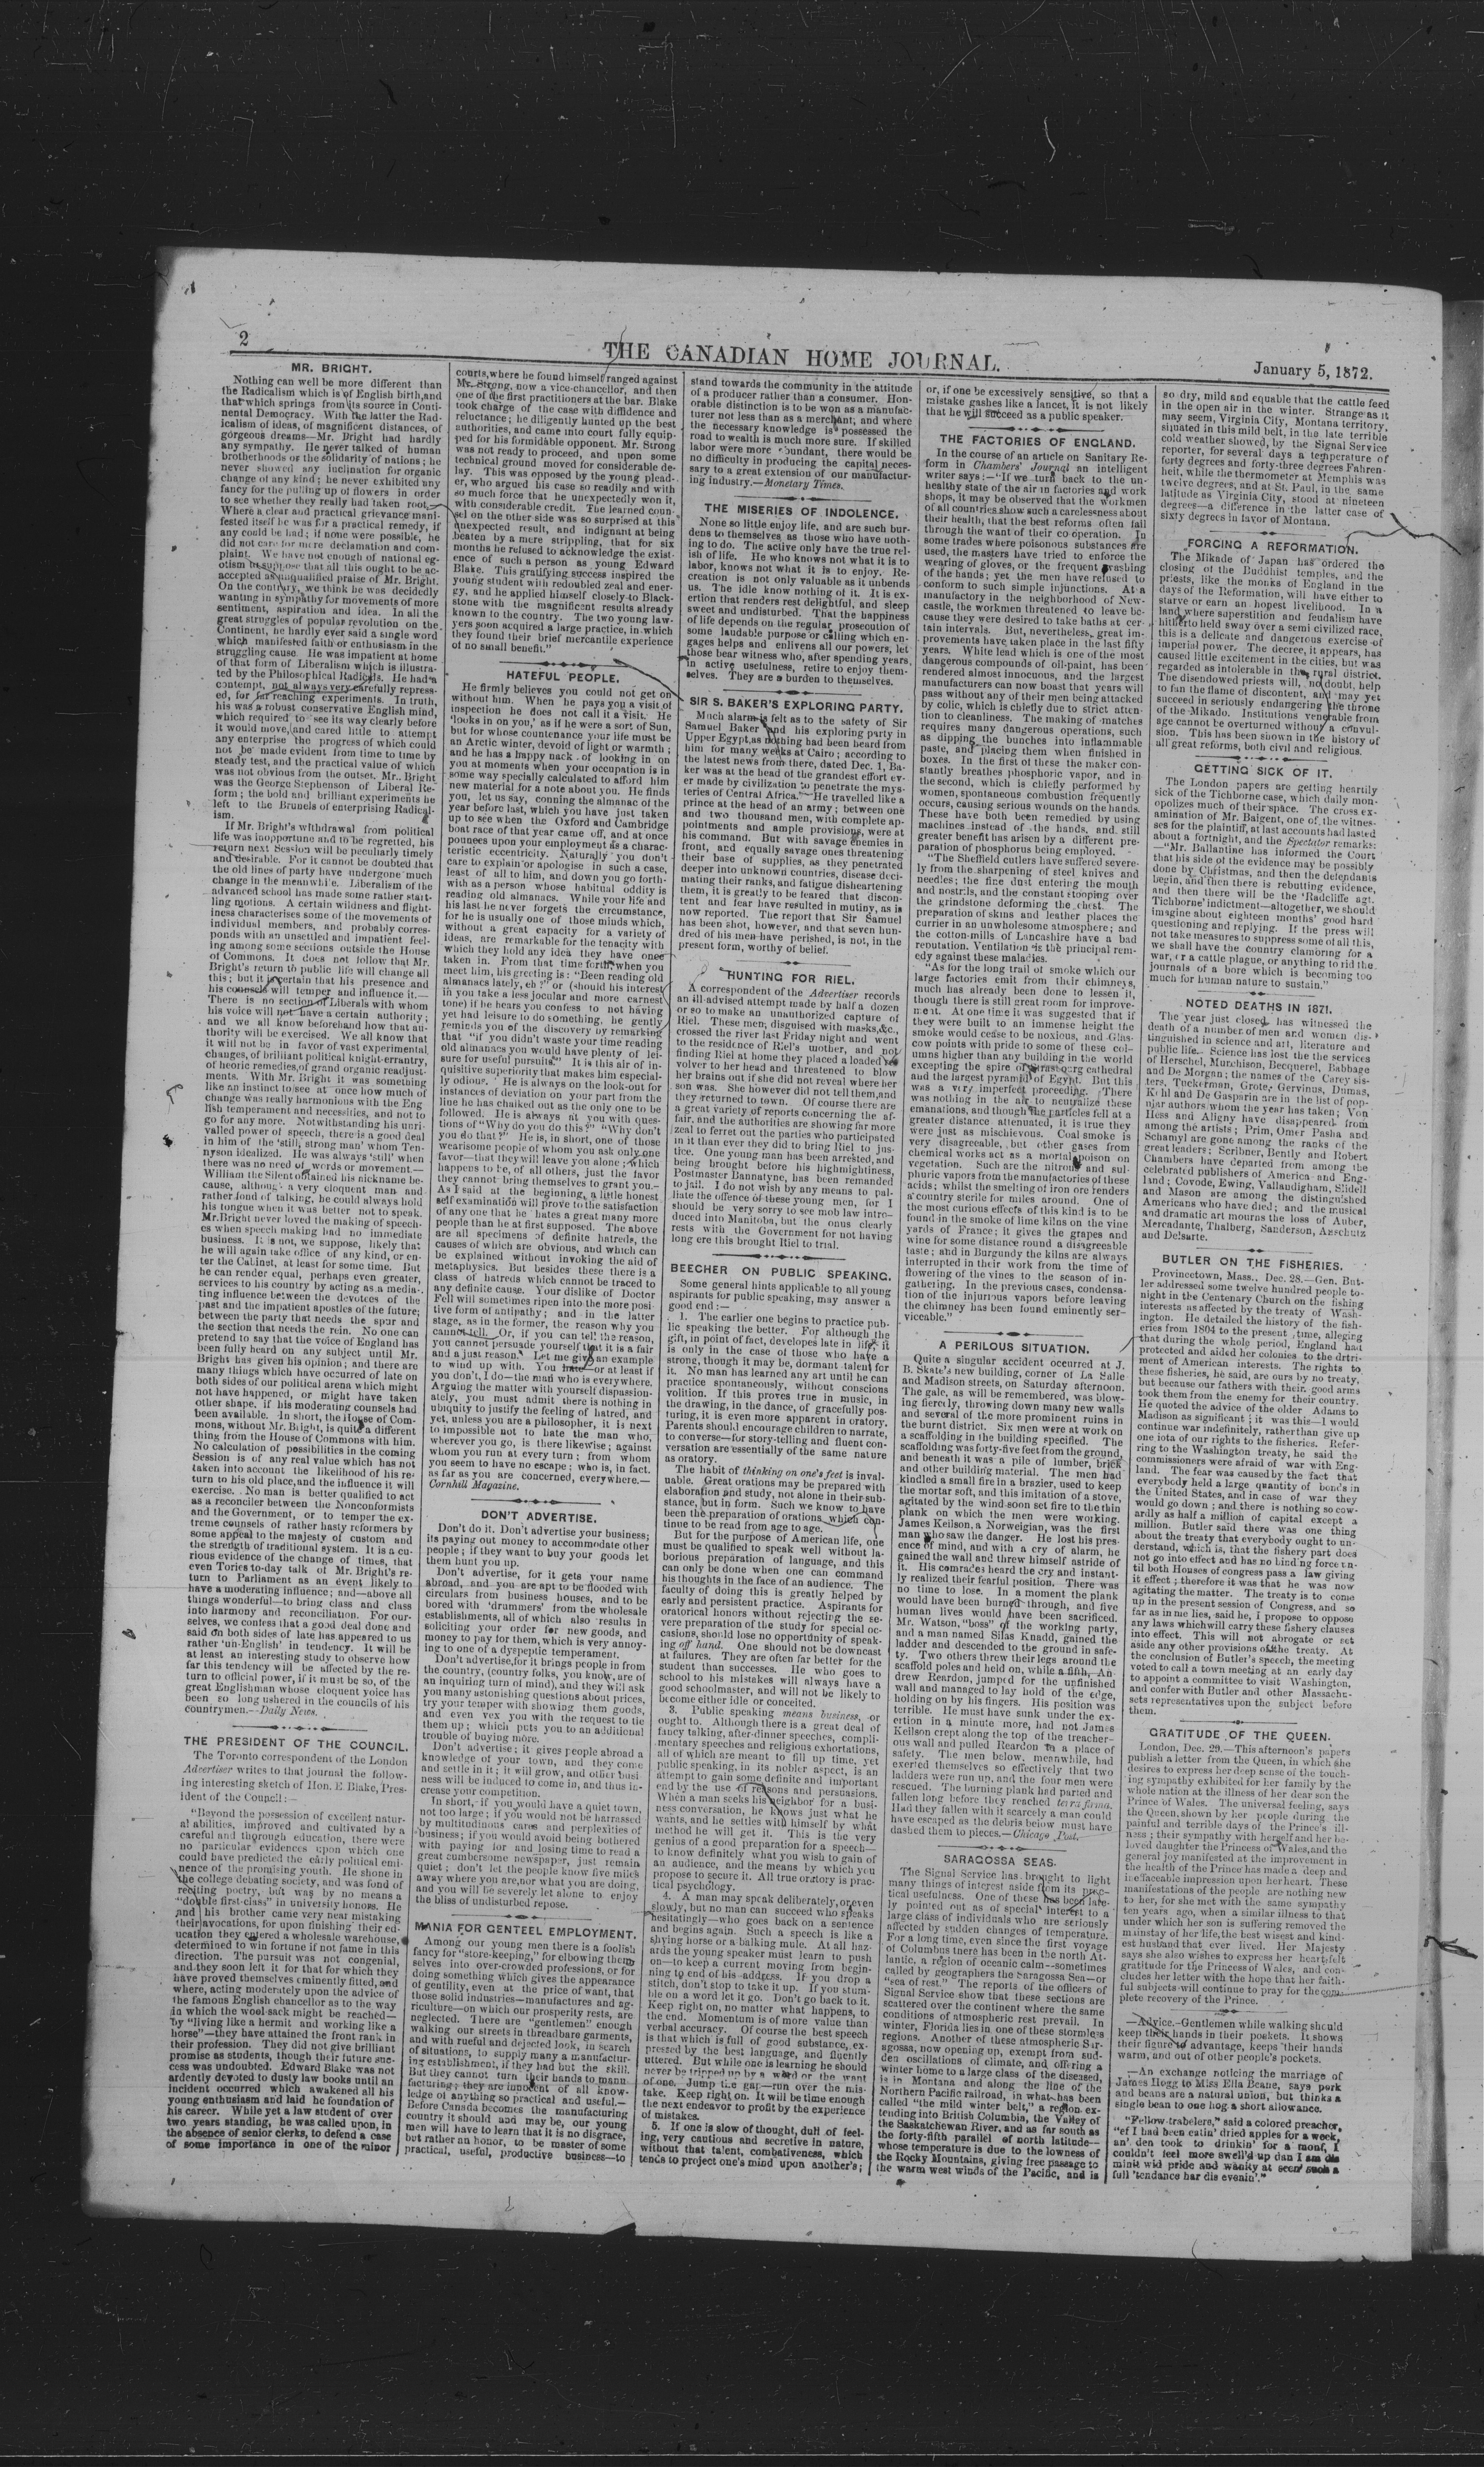 2
THE CANADIAN HOME JOURNAL.
January 5, 1872.
MR. BRIGHT.
Nothing can well be more different than
the Radicalism which is of English birth, and
that which springs from its source in Conti-
nental Democracy. With the latter the Rad-
icalism of ideas, of magnificent distances, of
gorgeous dreams—Mr. Bright had hardly
any sympathy. He never talked of human
brotherhoods or the solidarity of nations; he
never showed any inclination for organic
change of any kind; he never exhibited any
fancy for the pulling up of flowers in order
to see whether they really had taken root.
Where a clear and practical grievance mani-
fested itself he was for a practical remedy, if
any could be had; if none were possible, he
did not care for mere declamation and com-
plaint. We have not enough of national eg-
otism to suppose that all this ought to be ac-
cepted as unqualified praise of Mr. Bright.
On the contrary, we think he was decidedly
wanting in sympathy for movements of more
sentiment, aspiration and idea. In all the
great struggles of popular revolution on the
Continent, he hardly ever said a single word
which manifested faith or enthusiasm in the
struggling cause. He was impatient at home
of that form of Liberalism which is illustra-
ted by the Philosophical Radicals. He had a
contempt, not always very carefully repress-
ed, for far reaching experiments. In truth,
his was a robust conservative English mind,
which required to see its way clearly before
it would move, and cared little to attempt
any enterprise the progress of which could
not be made evident from time to time by
steady test, and the practical value of which
was not obvious from the outset. Mr. Bright
was the George Stephenson of Liberal Re-
form; the bold and brilliant experiments he
left to the Brunels of enterprising Radical-
ism.
If Mr. Bright's withdrawal from political
life was inopportune and to be regretted, his
return next Session will be peculiarly timely
and desirable. For it cannot be doubted that
the old lines of party have undergone much
change in the meanwhile. Liberalism of the
advanced school has made some rather start-
ling motions. A certain wildness and flight-
iness characterises some of the movements of
individual members, and probably corres-
ponds with an unsettled and impatient feel-
ing among some sections outside the House
of Commons. It does not follow that Mr.
Bright's return to public life will change all
this; but it is certain that his presence and
his counsels will temper and influence it.—
There is no section of Liberals with whom
his voice will not have a certain authority;
and we all know beforehand how that au-
thority will be exercised. We all know that
it will not be in favor of vast experimental
changes, of brilliant political knight-errantry,
of heoric remedies, of grand organic readjust-
ments. With Mr. Bright it was something
like an instinct to see at once how much of
change was really harmonious with the Eng
lish temperament and necessities, and not to
go for any more. Notwithstanding his unri-
valled power of speech, there is a good deal
in him of the 'still, strong man' whom Ten-
nyson idealized. He was always 'still' when
there was no need of words or movement.—
William the Silent obtained his nickname be-
cause, although a very eloquent man and
rather fond of talking, he could always hold
his tongue when it was better not to speak.
Mr. Bright never loved the making of speech-
es when speech making had no immediate
business. It is not, we suppose, likely that
he will again take office of any kind, or en-
ter the Cabinet, at least for some time. But
he can render equal, perhaps even greater,
services to his country by acting as a media-
ting influence between the devotees of the
past and the impatient apostles of the future;
between the party that needs the spur and
the section that needs the rein. No one can
pretend to say that the voice of England has
been fully heard on any subject until Mr.
Bright has given his opinion; and there are
many things which have occurred of late on
both sides of our political arena which might
not have happened, or might have taken
other shape, if his moderating counsels had
been available. In short, the House of Com-
mons, without Mr. Bright, is quite a different
thing from the House of Commons with him.
No calculation of possibilities in the coming
Session is of any real value which has not
taken into account the likelihood of his re-
turn to his old place, and the influence it will
exercise. No man is better qualified to act
as a reconciler between the Nonconformists
and the Government, or to temper the ex-
treme counsels of rather hasty reformers by
some appeal to the majesty of custom and
the strength of traditional system. It is a cu-
rious evidence of the change of times, that
even Tories to-day talk of Mr. Bright's re-
turn to Parliament as an event likely to
have a moderating influence; and—above all
things wonderful—to bring class and class
into harmony and reconciliation. For our-
selves, we confess that a good deal done and
said on both sides of late has appeared to us
rather 'un-English' in tendency. It will be
at least an interesting study to observe how
far this tendency will be affected by the re-
turn to official power, if it must be so, of the
great Englishman whose eloquent voice has
been so long ushered in the councils of his
countrymen.—Daily News.
THE PRESIDENT OF THE COUNCIL.
The Toronto correspondent of the London
Advertiser writes to that journal the follow-
ing interesting sketch of Hon. E. Blake, Pres-
ident of the Council:—
"Beyond the possession of excellent natur-
al abilities, improved and cultivated by a
careful and thorough education, there were
no particular evidences upon which one
could have predicted the early political emi-
nence of the promising youth. He shone in
the college debating society, and was fond of
reciting poetry, but was by no means a
"double first-class" in university honors. He
and his brother came very near mistaking
their avocations, for upon finishing their ed-
ucation they entered a wholesale warehouse,
determined to win fortune if not fame in this
direction. The pursuit was not congenial,
and they soon left it for that for which they
have proved themselves eminently fitted, and
where, acting moderately upon the advice of
the famous English chancellor as to the way
in which the wool-sack might be reached—
by "living like a hermit and working like a
horse"—they have attained the front rank in
their profession. They did not give brilliant
promise as students, though their future suc-
cess was undoubted. Edward Blake was not
ardently devoted to dusty law books until an
incident occurred which awakened all his
young enthusiasm and laid he foundation of
his career. While yet a law student of over
two years standing, he was called upon, in
the absence of senior clerks, to defend a case
of some importance in one of the minor
courts, where he found himself ranged against
Mr. Strong, now a vice-chancellor, and then
one of the first practitioners at the bar. Blake
took charge of the case with diffidence and
reluctance; he diligently hunted up the best
authorities, and came into court fully equip-
ped for his formidable opponent. Mr. Strong
was not ready to proceed, and upon some
technical ground moved for considerable de-
lay. This was opposed by the young plead-
er, who argued his case so readily and with
so much force that he unexpectedly won it,
with considerable credit. The learned coun-
sel on the other side was so surprised at this
unexpected result, and indignant at being
beaten by a mere stripping, that for six
months he refused to acknowledge the exist-
ence of such a person as young Edward
Blake. This gratifying success inspired the
young student with redoubled zeal and ener-
gy, and he applied himself closely to Black-
stone with the magnificent results already
known to the country. The two young law-
yers soon acquired a large practice, in which
they found their brief mercantile experience
of no small benefit."
HATEFUL PEOPLE.
He firmly believes you could not get on
without him. When he pays you a visit of
inspection he does not call it a visit. He
'looks in on you,' as if he were a sort of Sun,
but for whose countenance your life must be
an Arctic winter, devoid of light or warmth;
and he has a happy nack of looking in on
you at moments when your occupation is in
some way specially calculated to afford him
new material for a note about you. He finds
you, let us say, conning the almanac of the
year before last, which you have just taken
up to see when the Oxford and Cambridge
boat race of that year came off, and at once
pounces upon your employment as a charac-
teristic eccentricity. Naturally you don't
care to explain or apologise in such a case,
least of all to him, and down you go forth-
with as a person whose habitual oddity is
reading old almanacs. While your life and
his last he never forgets the circumstance,
for he is usually one of those minds which,
without a great capacity for a variety of
ideas, are remarkable for the tenacity with
which they hold any idea they have once
taken in. From that time forth, when you
meet him, his greeting is: "Been reading old
almanacs lately, eh?" or (should his interest
in you take a less jocular and more earnest
tone) if he hears you confess to not having
yet had leisure to do something, he gently
reminds you of the discovery by remarking
that "if you didn't waste your time reading
old almanacs you would have plenty of lei-
sure for useful pursuits." It is this air of in-
quisitive superiority that makes him especial-
ly odious. He is always on the look-out for
instances of deviation on your part from the
line he has chalked out as the only one to be
followed. He is always at you with ques-
tions of "Why do you do this?" "Why don't
you do that?" He is, in short, one of those
wearisome people of whom you ask only one
favor—that they will leave you alone; which
happens to be, of all others, just the favor
they cannot bring themselves to grant you.—
As I said at the beginning, a little honest
self examination will prove to the satisfaction
of any one that he hates a great many more
people than he at first supposed. The above
are all specimens of definite hatreds, the
causes of which are obvious, and which can
be explained without invoking the aid of
metaphysics. But besides these there is a
class of hatreds which cannot be traced to
any definite cause. Your dislike of Doctor
Fell will sometimes ripen into the more posi-
tive form of antipathy; and in the latter
stage, as in the former, the reason why you
cannot tell. Or, if you can tell the reason,
you cannot persuade yourself that it is a fair
and a just reason. Let me give an example
to wind up with. You hate—or at least if
you don't, I do—the man who is everywhere.
Arguing the matter with yourself dispassion-
ately, you must admit there is nothing in
ubiquity to justify the feeling of hatred, and
yet, unless you are a philosopher, it is next
to impossible not to hate the man who,
wherever you go, is there likewise; against
whom you run at every turn; from whom
you seem to have no escape; who is, in fact,
as far as you are concerned, everywhere.—
Cornhill Magazine.
DON'T ADVERTISE.
Don't do it. Don't advertise your business;
its paying out money to accommodate other
people; if they want to buy your goods let
them hunt you up.
Don't advertise, for it gets your name
abroad, and you are apt to be flooded with
circulars from business houses, and to be
bored with 'drummers' from the wholesale
establishments, all of which also results in
soliciting your order for new goods, and
money to pay for them, which is very annoy-
ing to one of a dyspeptic temperament.
Don't advertise, for it brings people in from
the country, (country folks, you know, are of
an inquiring turn of mind), and they will ask
you many astonishing questions about prices,
try your temper with showing them goods,
and even vex you with the request to tie
them up; which puts you to an additional
trouble of buying more.
Don't advertise; it gives people abroad a
knowledge of your town, and they come
and settle in it; it will grow, and other busi
ness will be induced to come in, and thus in-
crease your competition.
In short, if you would have a quiet town,
not too large; if you would not be harrassed
by multitudinous cares and perplexities of
business; if you would avoid being bothered
with paying for and losing time to read a
great cumbersome newspaper, just remain
quiet; don't let the people know five miles
away where you are, nor what you are doing,
and you will be severely let alone to enjoy
the bliss of undisturbed repose.
MANIA FOR GENTEEL EMPLOYMENT.
Among our young men there is a foolish
fancy for "store-keeping," for elbowing them
selves into over-crowded professions, or for
doing something which gives the appearance
of gentility, even at the price of want, that
those solid industries—manufactures and ag-
riculture—on which our prosperity rests, are
neglected. There are "gentlemen" enough
walking our streets in threadbare garments,
and with rueful and dejected look, in search
of situations, to supply many a manufactur-
ing establishment, if they had but the skill.
But they cannot turn their hands to manu
facturing; they are innocent of all know-
ledge of anything so practical and useful.—
Before Canada becomes the manufacturing
country it should and may be, our young
men will have to learn that it is no disgrace,
but rather an honor, to be master of some
practical, useful, productive business—to
stand towards the community in the attitude
of a producer rather than a consumer. Hon-
orable distinction is to be won as a manufac-
turer not less than as a merchant, and where
the necessary knowledge is possessed the
road to wealth is much more sure. If skilled
labor were more abundant, there would be
no difficulty in producing the capital neces-
sary to a great extension of our manufactur-
ing industry.—Monetary Times.
THE MISERIES OF INDOLENCE.
None so little enjoy life, and are such bur-
dens to themselves, as those who have noth-
ing to do. The active only have the true rel-
ish of life. He who knows not what it is to
labor, knows not what it is to enjoy. Re-
creation is not only valuable as it unbends
us. The idle know nothing of it. It is ex-
ertion that renders rest delightful, and sleep
sweet and undisturbed. That the happiness
of life depends on the regular prosecution of
some laudable purpose or calling which en-
gages helps and enlivens all our powers, let
those bear witness who, after spending years
in active usefulness, retire to enjoy them-
selves. They are a burden to themselves.
SIR S. BAKER'S EXPLORING PARTY.
Much alarm is felt as to the safety of Sir
Samuel Baker and his exploring party in
Upper Egypt, as nothing had been heard from
him for many weeks at Cairo; according to
the latest news from there, dated Dec. 1, Ba-
ker was at the head of the grandest effort ev-
er made by civilization to penetrate the mys-
teries of Central Africa. He travelled like a
prince at the head of an army; between one
and two thousand men, with complete ap-
pointments and ample provisions, were at
his command. But with savage enemies in
front, and equally savage ones threatening
their base of supplies, as they penetrated
deeper into unknown countries, disease deci-
mating their ranks, and fatigue disheartening
them, it is greatly to be feared that discon-
tent and fear have resulted in mutiny, as is
now reported. The report that Sir Samuel
has been shot, however, and that seven hun-
dred of his men have perished, is not, in the
present form, worthy of belief.
HUNTING FOR RIEL.
A correspondent of the Advertiser records
an ill-advised attempt made by half a dozen
or so to make an unauthorized capture of
Riel. These men, disguised with masks, &c.,
crossed the river last Friday night and went
to the residence of Riel's mother, and not
finding Riel at home they placed a loaded re
volver to her head and threatened to blow
her brains out if she did not reveal where her
son was. She however did not tell them, and
they returned to town. Of course there are
a great variety of reports concerning the af-
fair, and the authorities are showing far more
zeal to ferret out the parties who participated
in it than ever they did to bring Riel to jus-
tice. One young man has been arrested, and
being brought before his highmightiness,
Postmaster Bannatyne, has been remanded
to jail. I do not wish by any means to pal-
liate the offence of these young men, for I
should be very sorry to see mob law intro-
duced into Manitoba, but the onus clearly
rests with the Government for not having
long ere this brought Riel to trial.
BEECHER ON PUBLIC SPEAKING.
Some general hints applicable to all young
aspirants for public speaking, may answer a
good end:—
1. The earlier one begins to practice pub-
lic speaking the better. For although the
gift, in point of fact, developes late in life, it
is only in the case of those who have a
strong, though it may be, dormant talent for
it. No man has learned any art until he can
practice spontaneously, without conscious
volition. If this proves true in music, in
the drawing, in the dance, of gracefully pos-
turing, it is even more apparent in oratory.
Parents should encourage children to narrate,
to converse—for story-telling and fluent con-
versation are essentially of the same nature
as oratory.
The habit of thinking on one's feet is inval-
uable. Great orations may be prepared with
elaboration and study, not alone in their sub-
stance, but in form. Such we know to have
been the preparation of orations which con-
tinue to be read from age to age.
But for the purpose of American life, one
must be qualified to speak well without la-
borious preparation of language, and this
can only be done when one can command
his thoughts in the face of an audience. The
faculty of doing this is greatly helped by
early and persistent practice. Aspirants for
oratorical honors without rejecting the se-
vere preparation of the study for special oc-
casions, should lose no opportunity of speak-
ing off hand. One should not be downcast
at failures. They are often far better for the
student than successes. He who goes to
school to his mistakes will always have a
good schoolmaster, and will not be likely to
become either idle or conceited.
3. Public speaking means business, or
ought to. Although there is a great deal of
fancy talking, after-dinner speeches, compli-
mentary speeches and religious exhortations,
all of which are meant to fill up time, yet
public speaking, in its nobler aspect, is an
attempt to gain some definite and important
end by the use of reasons and persuasions.
When a man seeks his neighbor for a busi-
ness conversation, he knows just what he
wants, and he settles with himself by what
method he will get it. This is the very
genius of a good preparation for a speech—
to know definitely what you wish to gain of
an audience, and the means by which you
propose to secure it. All true oratory is prac-
tical psychology.
4. A man may speak deliberately, or even
slowly, but no man can succeed who speaks
hesitatingly—who goes back on a sentence
and begins again. Such a speech is like a
shying horse or a balking mule. At all haz-
ards the young speaker must learn to push
on—to keep a current moving from begin-
ning to end of his address. If you drop a
stitch, don't stop to take it up. If you stum-
ble on a word let it go. Don't go back to it.
Keep right on, no matter what happens, to
the end. Momentum is of more value than
verbal accuracy. Of course the best speech
is that which is full of good substance, ex-
pressed by the best language, and fluently
uttered. But while one is learning he should
never be tripped up by a word or the want
of one. Jump the gap—run over the mis-
take. Keep right on. It will be time enough
the next endeavor to profit by the experience
of mistakes.
5. If one is slow of thought, dull of feel-
ing, very cautious and secretive in nature,
without that talent, combativeness, which
tends to project one's mind upon another's;
or, if one be excessively sensitive, so that a
mistake gashes like a lancet, it is not likely
that he will succeed as a public speaker.
THE FACTORIES OF ENGLAND.
In the course of an article on Sanitary Re-
form in Chambers' Journal an intelligent
writer says:—"If we turn back to the un-
healthy state of the air in factories and work
shops, it may be observed that the workmen
of all countries show such a carelessness about
their health, that the best reforms often fail
through the want of their co operation. In
some trades where poisonous substances are
used, the masters have tried to enforce the
wearing of gloves, or the frequent washing
of the hands; yet the men have refused to
conform to such simple injunctions. At a
manufactory in the neighborhood of New-
castle, the workmen threatened to leave be-
cause they were desired to take baths at cer-
tain intervals. But, nevertheless, great im-
provements have taken place in the last fifty
years. White lead which is one of the most
dangerous compounds of oil-paint, has been
rendered almost innocuous, and the largest
manufacturers can now boast that years will
pass without any of their men being attacked
by colic, which is chiefly due to strict atten-
tion to cleanliness. The making of matches
requires many dangerous operations, such
as dipping the bunches into inflammable
paste, and placing them when finished in
boxes. In the first of these the maker con-
stantly breathes phosphoric vapor, and in
the second, which is chiefly performed by
women, spontaneous combustion frequently
occurs, causing serious wounds on the hands.
These have both been remedied by using
machines instead of the hands, and still
greater benefit has arisen by a different pre-
paration of phosphorus being employed.
"The Sheffield cutlers have suffered severe-
ly from the sharpening of steel knives and
needles; the fine dust entering the mouth
and nostrils, and the constant stooping over
the grindstone deforming the chest. The
preparation of skins and leather places the
currier in an unwholesome atmosphere; and
the cotton-mills of Lancashire have a bad
reputation. Ventilation is the principal rem-
edy against these maladies.
"As for the long trail of smoke which our
large factories emit from their chimneys,
much has already been done to lessen it,
though there is still great room for improve-
ment. At one time it was suggested that if
they were built to an immense height the
smoke would cease to be noxious, and Glas-
cow points with pride to some of these col-
umns higher than any building in the world
excepting the spire of Strasbourg cathedral
and the largest pyramid of Egypt. But this
was a very imperfect proceeding. There
was nothing in the air to neutralize these
emanations, and though the particles fell at a
greater distance attenuated, it is true they
were just as mischievous. Coal smoke is
very disagreeable, but other gases from
chemical works act as a mortal poison on
vegetation. Such are the nitrous and sul-
phuric vapors from the manufactories of these
acids; whilst the smelting of iron ore renders
a country sterile for miles around. One of
the most curious effects of this kind is to be
found in the smoke of lime kilns on the vine
yards of France; it gives the grapes and
wine for some distance round a disagreeable
taste; and in Burgundy the kilns are always
interrupted in their work from the time of
flowering of the vines to the season of in-
gathering. In the previous cases, condensa-
tion of the injurious vapors before leaving
the chimney has been found eminently ser-
viceable."
A PERILOUS SITUATION.
Quite a singular accident occurred at J.
B. Skate's new building, corner of La Salle
and Madison streets, on Saturday afternoon.
The gale, as will be remembered, was blow-
ing fiercely, throwing down many new walls
and several of the more prominent ruins in
the burnt district. Six men were at work on
a scaffolding in the building specified. The
scaffolding was forty-five feet from the ground,
and beneath it was a pile of lumber, brick
and other building material. The men had
kindled a small fire in a brazier, used to keep
the mortar soft, and this imitation of a stove,
agitated by the wind soon set fire to the thin
plank on which the men were working.
James Keilson, a Norweigian, was the first
man who saw the danger. He lost his pres-
ence of mind, and with a cry of alarm, he
gained the wall and threw himself astride of
it. His comrades heard the cry and instant-
ly realized their fearful position. There was
no time to lose. In a moment the plank
would have been burned through, and five
human lives would have been sacrificed.
Mr. Watson, "boss" of the working party,
and a man named Silas Knadd, gained the
ladder and descended to the ground in safe-
ty. Two others threw their legs around the
scaffold poles and held on, while a fifth, An-
drew Reardon, jumped for the unfinished
wall and managed to lay hold of the edge,
holding on by his fingers. His position was
terrible. He must have sunk under the ex-
ertion in a minute more, had not James
Keilson crept along the top of the treacher-
ous wall and pulled Reardon to a place of
safety. The men below, meanwhile, had
exerted themselves so effectively that two
ladders were run up, and the four men were
rescued. The burning plank had parted and
fallen long before they reached terra firma.
Had they fallen with it scarcely a man could
have escaped as the debris below must have
dashed them to pieces.—Chicago Post.
SARAGOSSA SEAS.
The Signal Service has brought to light
many things of interest aside from its prac-
tical usefulness. One of these has been late-
ly pointed out as of special interest to a
large class of individuals who are seriously
affected by sudden changes of temperature.
For a long time, even since the first voyage
of Columbus there has been in the north At-
lantic, a region of oceanic calm—sometimes
called by geographers the Saragossa Sea—or
"sea of rest." The reports of the officers of
Signal Service show that these sections are
scattered over the continent where the same
conditions of atmospheric rest prevail. In
winter, Florida lies in one of these stormless
regions. Another of these atmospheric Sar-
agossa, now opening up, exempt from sud-
den oscillations of climate, and offering a
winter home to a large class of the diseased,
is in Montana and along the line of the
Northern Pacific railroad, in what has been
called "the mild winter belt," a region ex-
tending into British Columbia, the Valley of
the Saskatchewan River, and as far south as
the forty-fifth parallel of north latitude—
whose temperature is due to the lowness of
the Rocky Mountains, giving free passage to
the warm west winds of the Pacific, and is
so dry, mild and equable that the cattle feed
in the open air in the winter. Strange as it
may seem, Virginia City, Montana territory,
situated in this mild belt, in the late terrible
cold weather showed, by the Signal Service
reporter, for several days a temperature of
forty degrees and forty-three degrees Fahren-
heit, while the thermometer at Memphis was
twelve degrees, and at St. Paul, in the same
latitude as Virginia City, stood at nineteen
degrees—a difference in the latter case of
sixty degrees in favor of Montana.
FORCING A REFORMATION.
The Mikade of Japan has ordered the
closing of the Buddhist temples, and the
priests, like the monks of England in the
days of the Reformation, will have either to
starve or earn an hopest livelihood. In a
land where superstition and feudalism have
hitherto held sway over a semi civilized race,
this is a delicate and dangerous exercise of
imperial power. The decree, it appears, has
caused little excitement in the cities, but was
regarded as intolerable in the rural district.
The disendowed priests will, no doubt, help
to fan the flame of discontent, and may yet
succeed in seriously endangering the throne
of the Mikado. Institutions venerable from
age cannot be overturned without a convul-
sion. This has been shown in the history of
all great reforms, both civil and religious.
GETTING SICK OF IT.
The London papers are getting heartily
sick of the Tichborne case, which daily mon-
opolizes much of their space. The cross ex-
amination of Mr. Baigent, one of the witnes-
ses for the plaintiff, at last accounts had lasted
about a fortnight, and the Spectator remarks:
—"Mr. Ballantine has informed the Court
that his side of the evidence may be possibly
done by Christmas, and then the defendants
begin, and then there is rebutting evidence,
and then there will be the 'Radcliffe agt.
Tichborne' indictment—altogether, we should
imagine about eighteen months' good hard
questioning and replying. If the press will
not take measures to suppress some of all this,
we shall have the country clamoring for a
war, or a cattle plague, or anything to rid the
journals of a bore which is becoming too
much for human nature to sustain."
NOTED DEATHS IN 1871.
The year just closed has witnessed the
death of a number of men and women dis-
tinguished in science and art, literature and
public life. Science has lost the the services
of Herschel, Murchison, Becquerel, Babbage
and De Morgan; the names of the Carey sis-
ters, Tuckerman, Grote, Gervinus, Dumas,
Kohl and De Gasparin are in the list of pop-
ular authors whom the year has taken; Von
Hess and Aligny have disappeared from
among the artists; Prim, Omer Pasha and
Schamyl are gone among the ranks of the
great leaders; Scribner, Bently and Robert
Chambers have departed from among the
celebrated publishers of America and Eng-
land; Covode, Ewing, Vallandigham, Slidell
and Mason are among the distinguished
Americans who have died; and the musical
and dramatic art mourns the loss of Auber,
Mercadante, Thalberg, Sanderson, Anschutz
and Delsarte.
BUTLER ON THE FISHERIES.
Provincetown, Mass., Dec. 28.—Gen. But-
ler addressed some twelve hundred people to-
night in the Centenary Church on the fishing
interests as affected by the treaty of Wash-
ington. He detailed the history of the fish-
eries from 1804 to the present time, alleging
that during the whole period, England had
protected and aided her colonies to the detri-
ment of American interests. The rights to
these fisheries, he said, are ours by no treaty,
but because our fathers with their good arms
took them from the enemy for their country.
He quoted the advice of the older Adams to
Madison as significant; it was this—I would
continue war indefinitely, rather than give up
one iota of our rights to the fisheries. Refer-
ring to the Washington treaty, he said the
commissioners were afraid of war with Eng-
land. The fear was caused by the fact that
everybody held a large quantity of bonds in
the United States, and in case of war they
would go down; and there is nothing so cow-
ardly as half a million of capital except a
million. Butler said there was one thing
about the treaty that everybody ought to un-
derstand, which is, that the fishery part does
not go into effect and has no binding force un-
til both Houses of congress pass a law giving
it effect; therefore it was that he was now
agitating the matter. The treaty is to come
up in the present session of Congress, and so
far as in me lies, said he, I propose to oppose
any laws which will carry these fishery clauses
into effect. This will not abrogate or set
aside any other provisions of the treaty. At
the conclusion of Butler's speech, the meeting
voted to call a town meeting at an early day
to appoint a committee to visit Washington,
and confer with Butler and other Massachu-
setts representatives upon the subject before
them.
GRATITUDE OF THE QUEEN.
London, Dec. 29.—This afternoon's papers
publish a letter from the Queen, in which she
desires to express her deep sense of the touch-
ing sympathy exhibited for her family by the
whole nation at the illness of her dear son the
Prince of Wales. The universal feeling, says
the Queen, shown by her people during the
painful and terrible days of the Prince's ill-
ness; their sympathy with herself and her be-
loved daughter the Princess of Wales, and the
general joy manifested at the improvement in
the health of the Prince has made a deep and
ineffaceable impression upon her heart. These
manifestations of the people are nothing new
to her, for she met with the same sympathy
ten years ago, when a similar illness to that
under which her son is suffering removed the
mainstay of her life, the best wisest and kind-
est husband that ever lived. Her Majesty
says she also wishes to express her heartfelt
gratitude for the Princess of Wales, and con-
cludes her letter with the hope that her faith-
ful subjects will continue to pray for the com-
plete recovery of the Prince.
—Advice.—Gentlemen while walking should
keep their hands in their pockets. It shows
their figure to advantage, keeps their hands
warm, and out of other people's pockets.
—An exchange noticing the marriage of
James Hogg to Miss Ella Beane, says pork
and beans are a natural union, but thinks a
single bean to one hog a short allowance.
"Fellow-trabelers," said a colored preacher,
"ef I had been eatin' dried apples for a week,
an' den took to drinkin' for a monf, I
couldn't feel more swell'd up dan I am dis
minit wid pride and wanity at seen' such a
full 'tendance har dis evenin'."